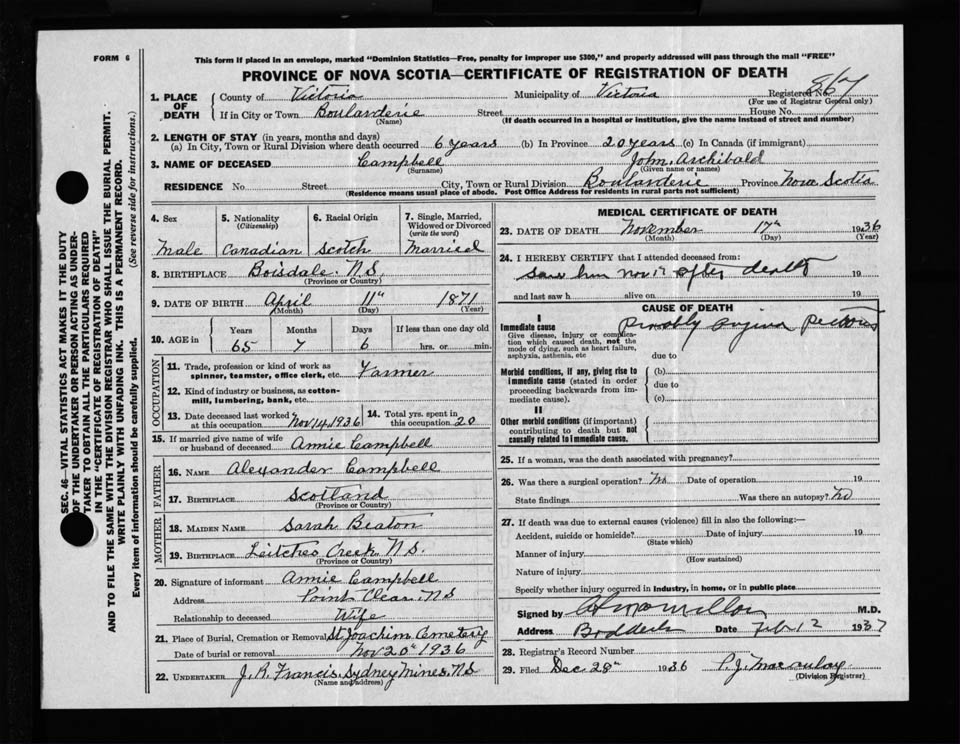 FORM 6
This form if placed in an envelope, marked "Dominion Statistics—Free, penalty for improper use $300," and properly addressed will pass through the mail "FREE"
PROVINCE OF NOVA SCOTIA—CERTIFICATE OF REGISTRATION OF DEATH
1. PLACE OF DEATH
County of Victoria Municipality of Victoria Registered No. 867
(For use of Registrar General only)
If in City or Town Boulanderie Street House No.
(Name) (If death occurred in a hospital or institution, give the name instead of street and number)
2. LENGTH OF STAY (in years, months and days)
(a) In City, Town or Rural Division where death occurred 6 years (b) In Province 20 years (c) In Canada (if immigrant)
3. NAME OF DECEASED Campbell John Archibald
(Surname) (Given name or names)
RESIDENCE No. Street City, Town or Rural Division Boulanderie Province Nova Scotia
(Residence means usual place of abode. Post Office Address for residents in rural parts not sufficient)
4. Sex Male
5. Nationality (Citizenship) Canadian
6. Racial Origin Scotch
7. Single, Married, Widowed or Divorced (write the word) Married
8. BIRTHPLACE Boisdale N.S.
(Province or Country)
9. DATE OF BIRTH April 11th 1871
(Month) (Day) (Year)
10. AGE in Years 65 Months 7 Days 6 If less than one day old hrs. or min.
OCCUPATION
11. Trade, profession or kind of work as spinner, teamster, office clerk, etc. Farmer
12. Kind of industry or business, as cotton-mill, lumbering, bank, etc.
13. Date deceased last worked at this occupation Nov 14, 1936
14. Total yrs. spent in this occupation 20
15. If married give name of wife or husband of deceased Annie Campbell
FATHER
16. NAME Alexander Campbell
17. BIRTHPLACE Scotland
(Province or Country)
MOTHER
18. MAIDEN NAME Sarah Beaton
19. BIRTHPLACE Leitches Creek N.S.
(Province or Country)
20. Signature of informant Annie Campbell
Address Point Clear N S
Relationship to deceased Wife
21. Place of Burial, Cremation or Removal St Joachim Cemetery
Date of burial or removal Nov 20th 1936
22. UNDERTAKER J. R. Francis, Sydney Mines, NS
(Name and address)
MEDICAL CERTIFICATE OF DEATH
23. DATE OF DEATH November 17th 1936
(Month) (Day) (Year)
24. I HEREBY CERTIFY that I attended deceased from:
saw him Nov 17 after death 19
and last saw h alive on 19
CAUSE OF DEATH
I
Immediate cause Probably angina pectoris
Give disease, injury or complication which caused death, not the mode of dying, such as heart failure, asphyxia, asthenia, etc
due to
Morbid conditions, if any, giving rise to immediate cause (stated in order proceeding backwards from immediate cause).
(b)
due to
(c)
II
Other morbid conditions (if important) contributing to death but not causally related to immediate cause.
25. If a woman, was the death associated with pregnancy?
26. Was there a surgical operation? No Date of operation 19
State findings Was there an autopsy? no
27. If death was due to external causes (violence) fill in also the following:—
Accident, suicide or homicide? Date of injury 19
(State which)
Manner of injury
(How sustained)
Nature of injury
Specify whether injury occurred in Industry, in home, or in public place
Signed by M.D.
Address Baddeck Date Feb 12 1937
28. Registrar's Record Number
29. Filed Dec 28th 1936 P. J. Macaulay
(Division Registrar)
SEC. 46—VITAL STATISTICS ACT MAKES IT THE DUTY
OF THE UNDERTAKER OR PERSON ACTING AS UNDER-
TAKER TO OBTAIN ALL THE PARTICULARS REQUIRED
IN THE "CERTIFICATE OF REGISTRATION OF DEATH"
AND TO FILE THE SAME WITH THE DIVISION REGISTRAR WHO SHALL ISSUE THE BURIAL PERMIT.
WRITE PLAINLY WITH UNFADING INK. THIS IS A PERMANENT RECORD.
Every item of information should be carefully supplied. (See reverse side for instructions.)